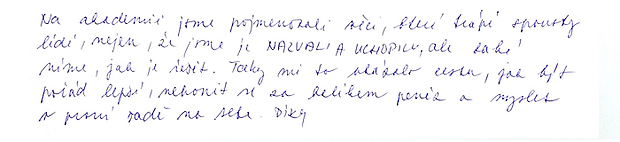 Na akademii jsme pojmenovali věci, které trápí spousty
lidí, nejen, že jsme je NAZVALI A UCHOPILI, ale také
víme, jak je řešit. Taky mi to ukázalo cestu, jak být
pořád lepší, nehonit se za balíkem peněz a myslet
v první řadě na sebe. Díky